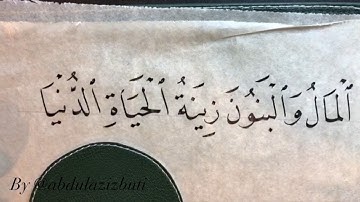 الْمَالُ وَالْبَنُونَ زِينَةُ الْحَيَاةِ الدُّنْيَا
By @abdulazizbuti